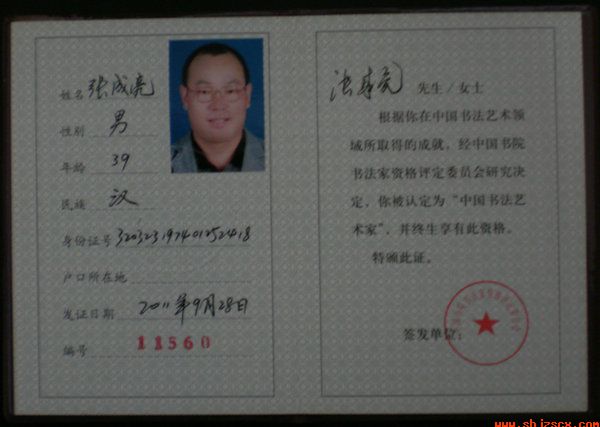 姓名 张成亮
性别 男
年龄 39
民族 汉
身份证号 320323197401252418
户口所在地
发证日期 2011年9月28日
编号 11560
张成亮 先生／女士
根据你在中国书法艺术领
域所取得的成就，经中国书院
书法家资格评定委员会研究决
定，你被认定为“中国书法艺
术家”，并终生享有此资格。
特颁此证。
签发单位：
www.shjzscx.com